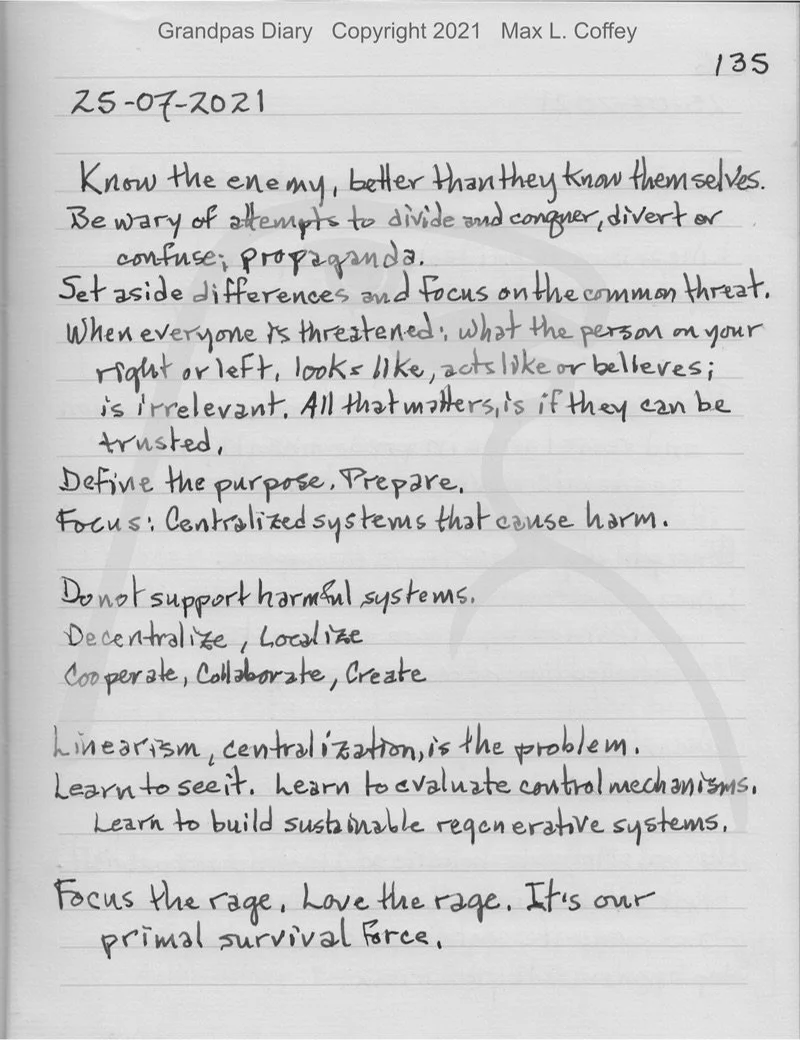 Grandpas Diary Copyright 2021 Max L. Coffey
135
25-07-2021
Know the enemy, better than they know themselves.
Be wary of attempts to divide and conquer, divert or
confuse; propaganda.
Set aside differences and focus on the common threat.
When everyone is threatened: what the person on your
right or left, looks like, acts like or believes;
is irrelevant. All that matters, is if they can be
trusted.
Define the purpose. Prepare.
Focus: Centralized systems that cause harm.
Do not support harmful systems.
Decentralize, Localize
Cooperate, Collaborate, Create
Linearism, centralization, is the problem.
Learn to see it. Learn to evaluate control mechanisms.
Learn to build sustainable regenerative systems.
Focus the rage. Love the rage. It's our
primal survival force.